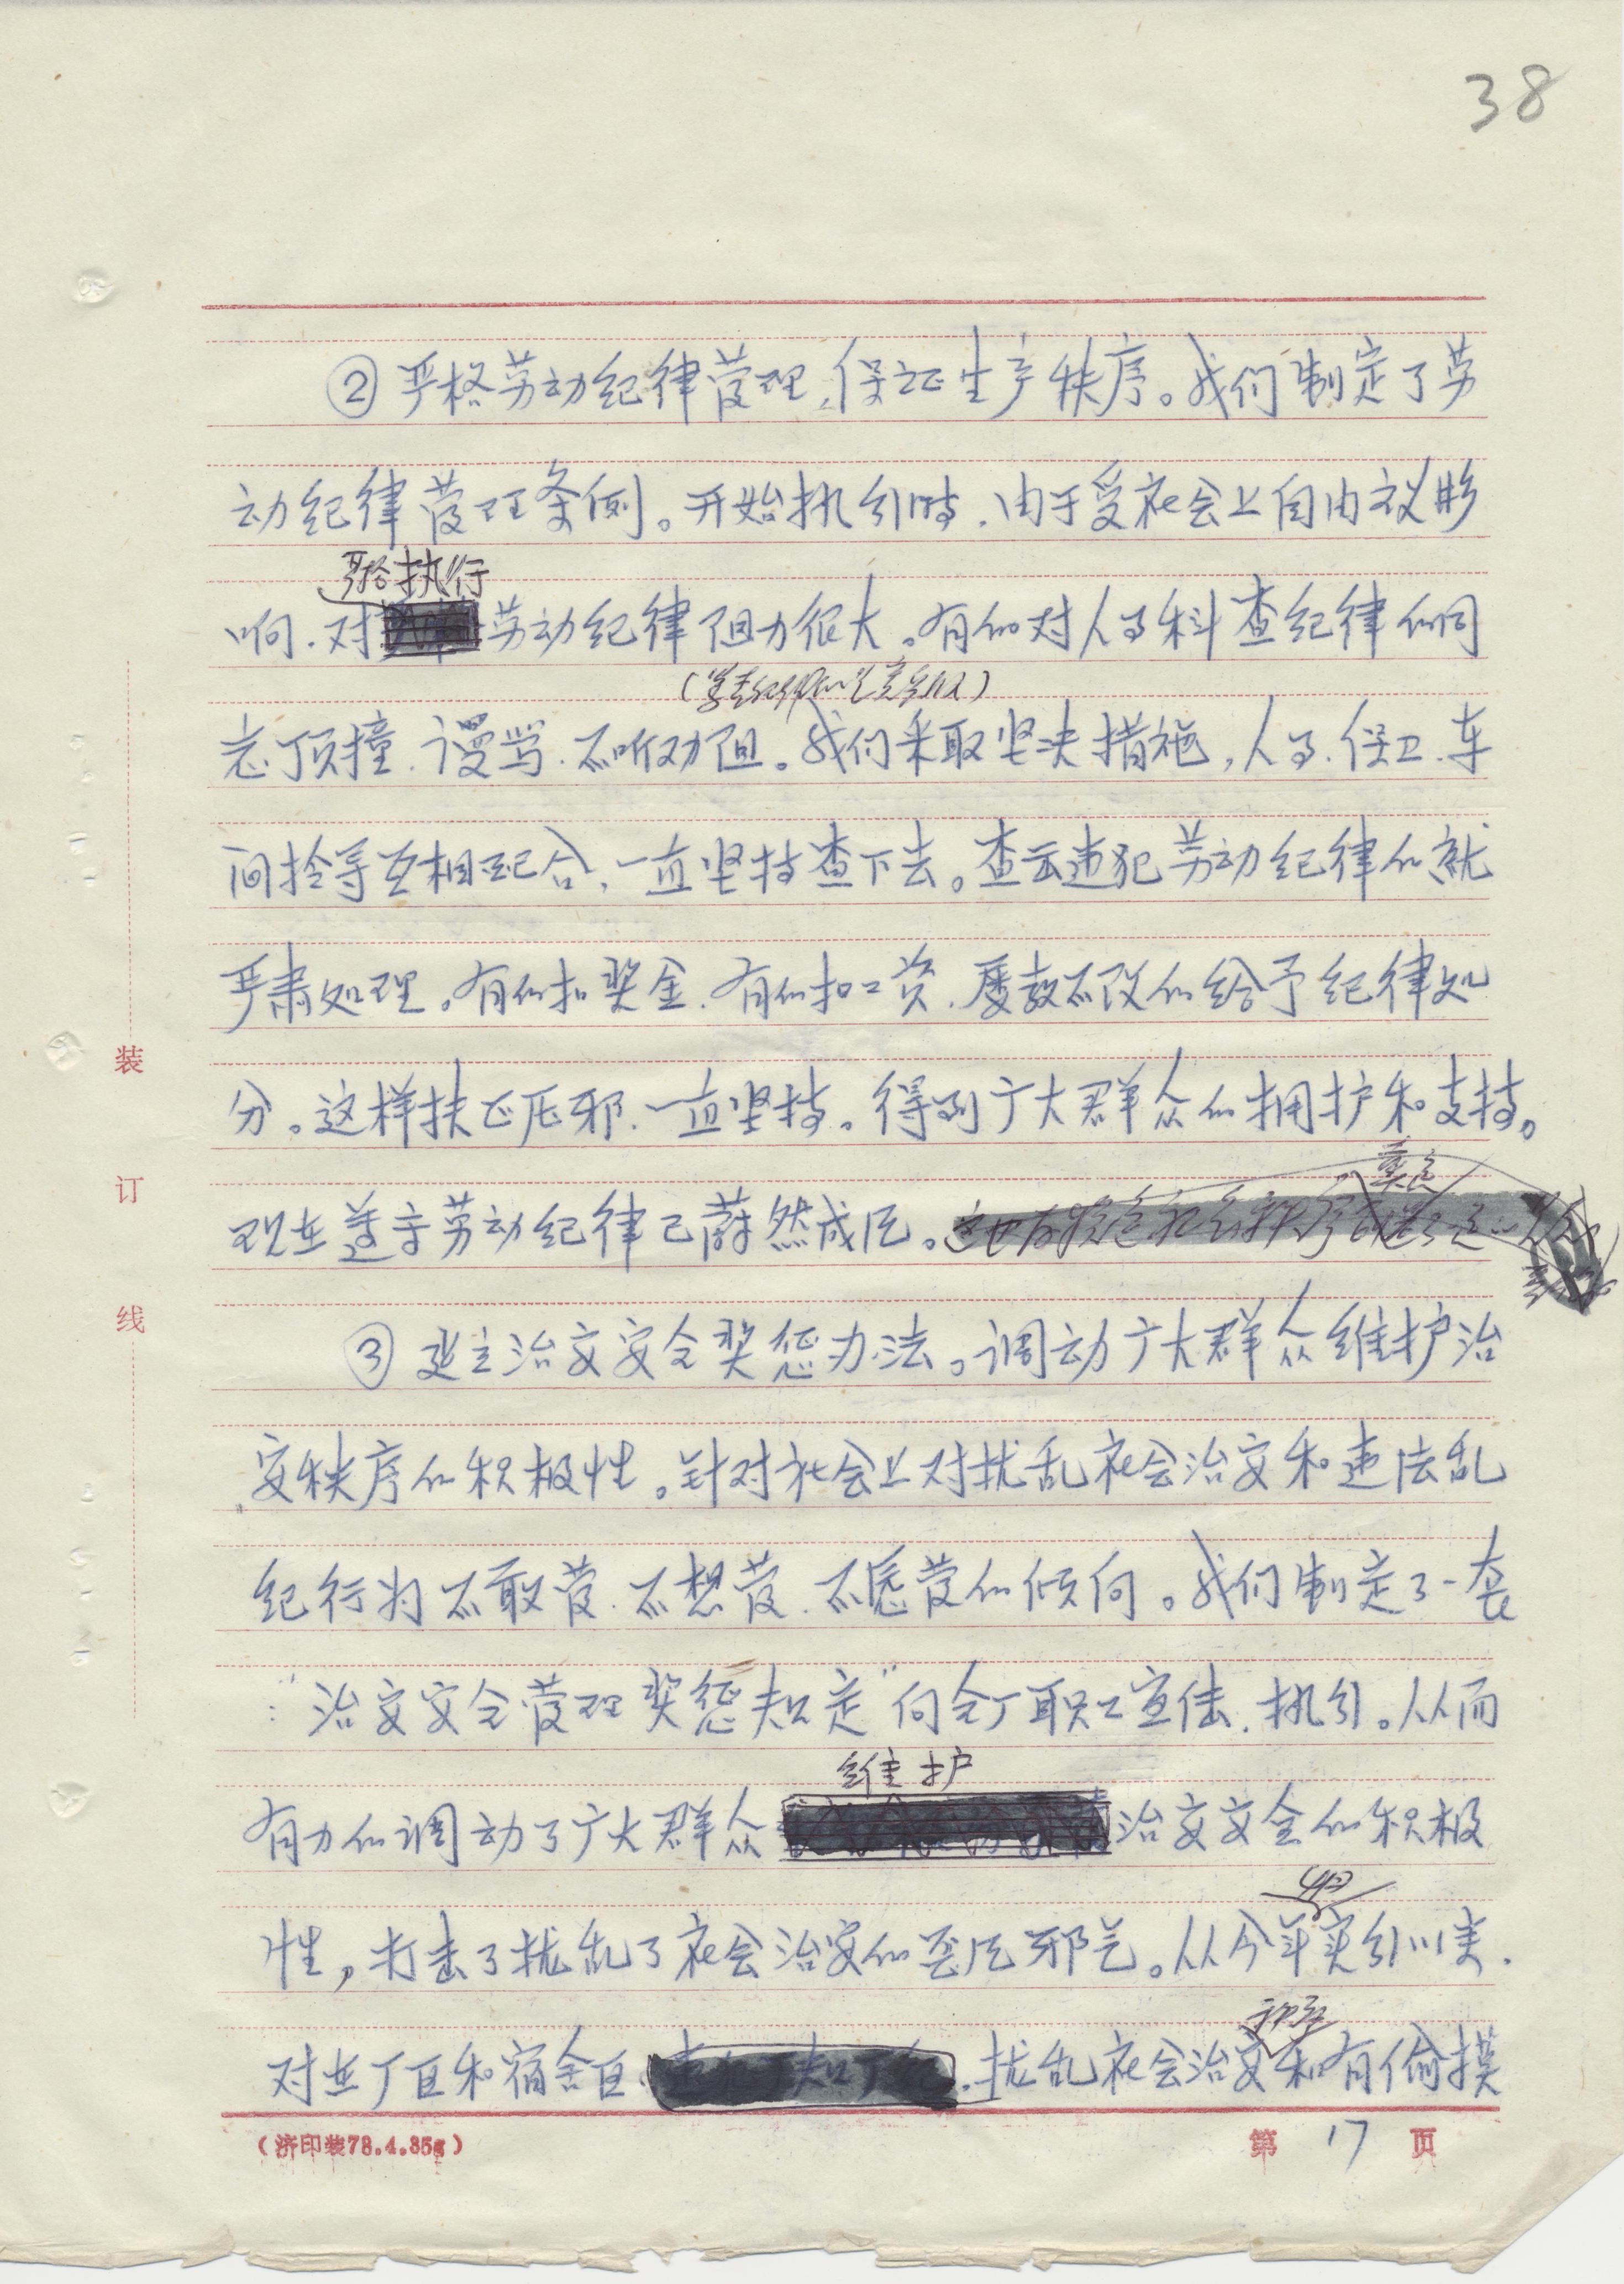 38
②严格劳动纪律管理，保证生产秩序。我们制定了劳
动纪律管理条例。开始执行时，由于受社会上自由主义影
严格执行
响，对劳动纪律阻力很大。有的对人事科查纪律的同
志顶撞、谩骂、不听劝阻。我们采取坚决措施，人事、保卫、车
间拴等互相配合，一直坚持查下去。查出违犯劳动纪律的就
严肃处理。有的扣奖金、有的扣工资、屡教不改的给予纪律处
分。这样扶正压邪、一直坚持。得到广大群众的拥护和支持。
现在遵守劳动纪律已蔚然成风。
③建立治安安全奖惩办法。调动广大群众维护治
安秩序的积极性。针对社会上对扰乱社会治安和违法乱
纪行为不敢管、不想管、不愿管的倾向。我们制定了一套
“治安安全管理奖惩规定”向全厂职工宣传、执行。从而
维护
有力的调动了广大群众治安安全的积极
性，打击了扰乱了社会治安的歪风邪气。从今年实行以来，
秩序
对在厂区和宿舍区、扰乱社会治安和有偷摸
装
订
线
（济印装78.4.35g）
第 17 页